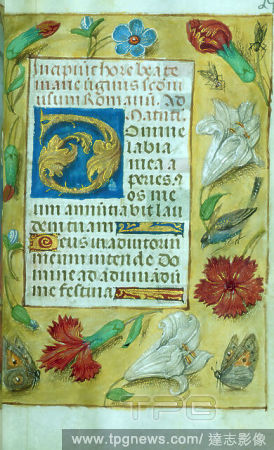 Incipiūt hore beate
marie uirginis scdm
usum Romanū. Ad
Matuti.
Domine
labia
mea a
peries.
os me
um annūtiabit lau
dem tuam
Deus in adiutoriū
meum intende Do
mine ad adiuuādū
me festina
TPG
www.tpgnews.com/ 達志影像